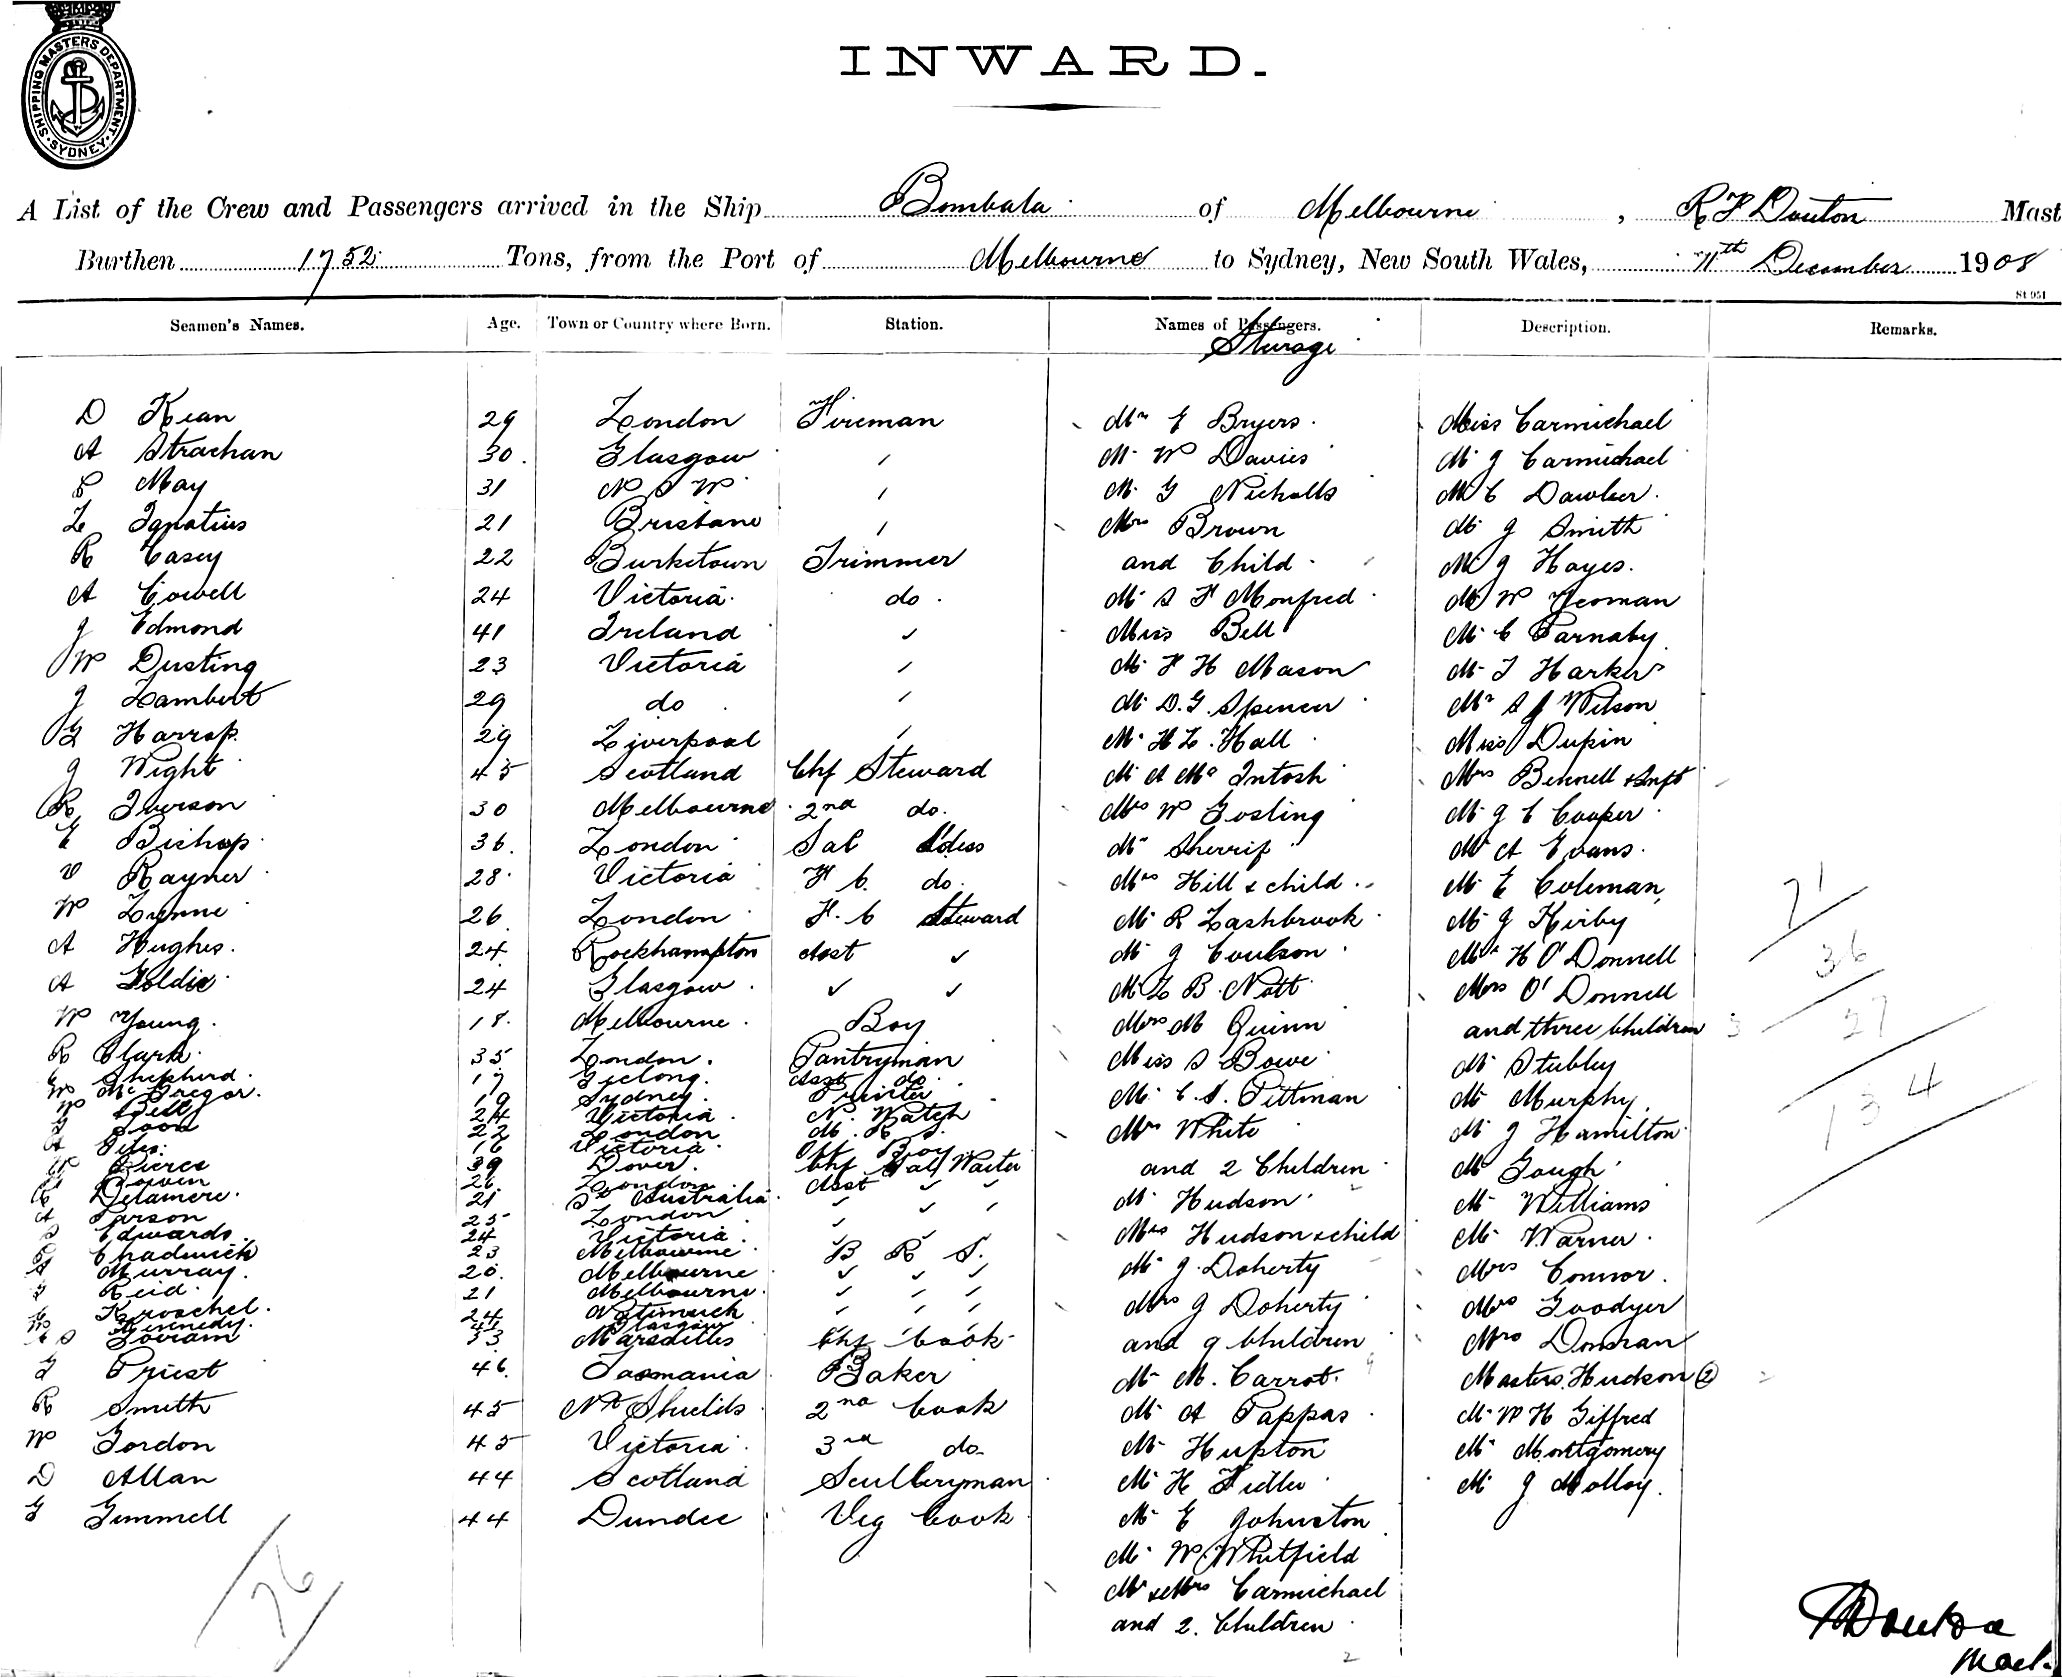 SHIPPING MASTERS DEPARTMENT · SYDNEY ·
INWARD.
A List of the Crew and Passengers arrived in the Ship Bombala of Melbourne, R F Douton Mast
Burthen 1752 Tons, from the Port of Melbourne to Sydney, New South Wales, 11th December 1908
St 951
Seamen's Names. Age. Town or Country where Born. Station. Names of Passengers. Description. Remarks.
Steerage
D Kean 29 London Fireman Mr E Bryers Miss Carmichael
A Strachan 30 Glasgow " Mr W Davies Mr J Carmichael
May 31 N S W " Mr G Nicholls Mr C Dawber
L Ignatius 21 Brisbane " Mrs Brown Mr J Smith
R Casey 22 Burketown Trimmer and Child Mr J Hayes
A Cowell 24 Victoria do Mr S F Monfred Mr W Yeoman
J Edmond 41 Ireland " Miss Bell Mr C Parnaby
W Dusting 23 Victoria " Mr F H Mason Mr T Harker
J Lambert 29 do " Mr D.G. Spencer Mr S J Wilson
G Harrop 29 Liverpool " Mr H L Hall Miss Dupin
J Wight 45 Scotland Chf Steward Mr A McIntosh Mrs Bennell & Inft
R Iverson 30 Melbourne 2nd do. Mrs W Gosling Mr J C Cooper
E Bishop 36 London Sal Stdess Mr Sherrif Mr A Evans
V Rayner 28 Victoria F. C. do. Mrs Hill & child Mr E Coleman
W Lynne 26 London F. C Steward Mr R Lashbrook Mr J Kirby 71
A Hughes 24 Rockhampton Asst ✓ Mr J Coulson Mr H O'Donnell 36
A Goldie 24 Glasgow ✓ ✓ Mr L B. Nott Mrs O'Donnell
W Young 18 Melbourne Boy Mrs M Quinn and three Children 3 27
R Clark 35 London Pantryman Miss S Bowe Mr Stubley
Shepherd 17 Geelong Asst do Mr C. S. Pittman Mr Murphy 134
W McGregor 19 Sydney Printer
W Bell 24 Victoria N. Watch Mrs White Mr J Hamilton
22 London M. R S.
A Tites 16 Victoria Boy and 2 Children Mr Gough
W Pierce 39 Dover Chf Sal Waiter
Bowen 26 London Asst ✓ ✓ Mr Hudson Mr Williams
R Delamere 21 Sth Australia ✓ ✓ ✓
A Parson 25 London ✓ Mrs Hudson & child Mr Warner
S Edwards 24 Victoria ✓
Chadwick 23 Melbourne B R S. Mr J. Doherty Mrs Connor
A Murray 20 Melbourne ✓ ✓ ✓
Reid 21 Melbourne ✓ ✓ ✓ Mrs J Doherty Mrs Goodyer
C Kroschel 24 Natimuck ✓ ✓ ✓
W Kennedy Glasgow
53 Marseilles Chf Cook and 9 Children Mrs Donran
Priest 46 Tasmania Baker Mr M. Carrot 9 Masters Hudson (2) 2
R Smith 45 Nth Shields 2nd Cook Mr A Pappas Mr W H Giffred
W Gordon 45 Victoria 3rd do. Mr Hupton Mr Montgomery
D Allan 44 Scotland Sculleryman Mr H Fidler Mr J Molloy
G Gemmell 44 Dundee Veg Cook Mr E Johnston
76 Mr W. Whitfield
Mr & Mrs Carmichael
and 2 Children
2
R F Douton
Mast.